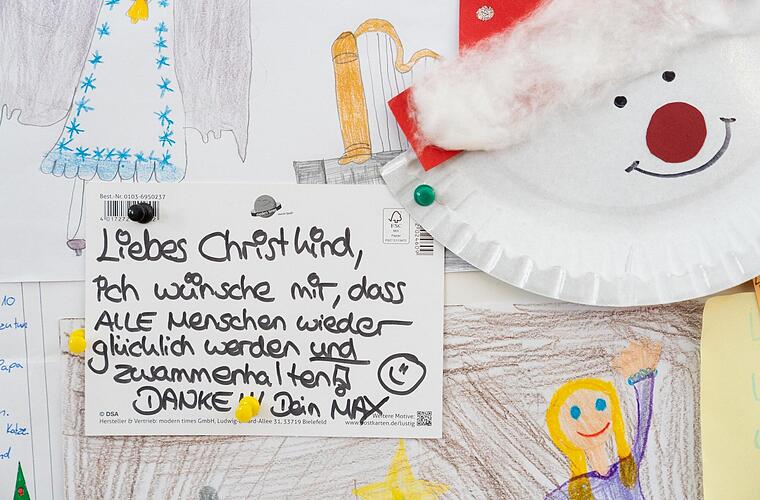 Best.-Nr. 0103-6950237
FSC
MIX
Papier
Liebes Christkind,
Ich wünsche mir, dass
ALLE Menschen wieder
glücklich werden und
zusammenhalten!
DANKE!!! Dein MAX
© DSA
Weitere Motive:
Hersteller & Vertrieb: modern times GmbH, Ludwig-Erhard-Allee 31, 33719 Bielefeld
www.postkarten.de/lustig
10
Papa
Katze